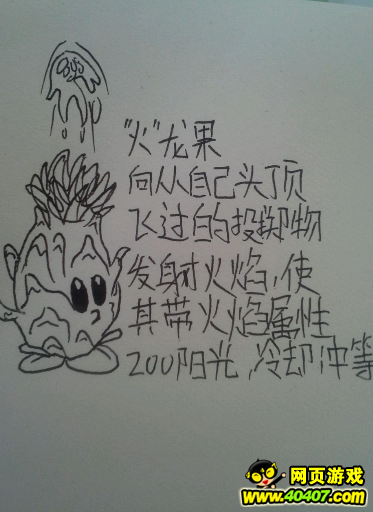 "火"龙果
向从自己头顶
飞过的投掷物
发射火焰,使
其带火焰属性
200阳光,冷却冲等
网页游戏
www.40407.com